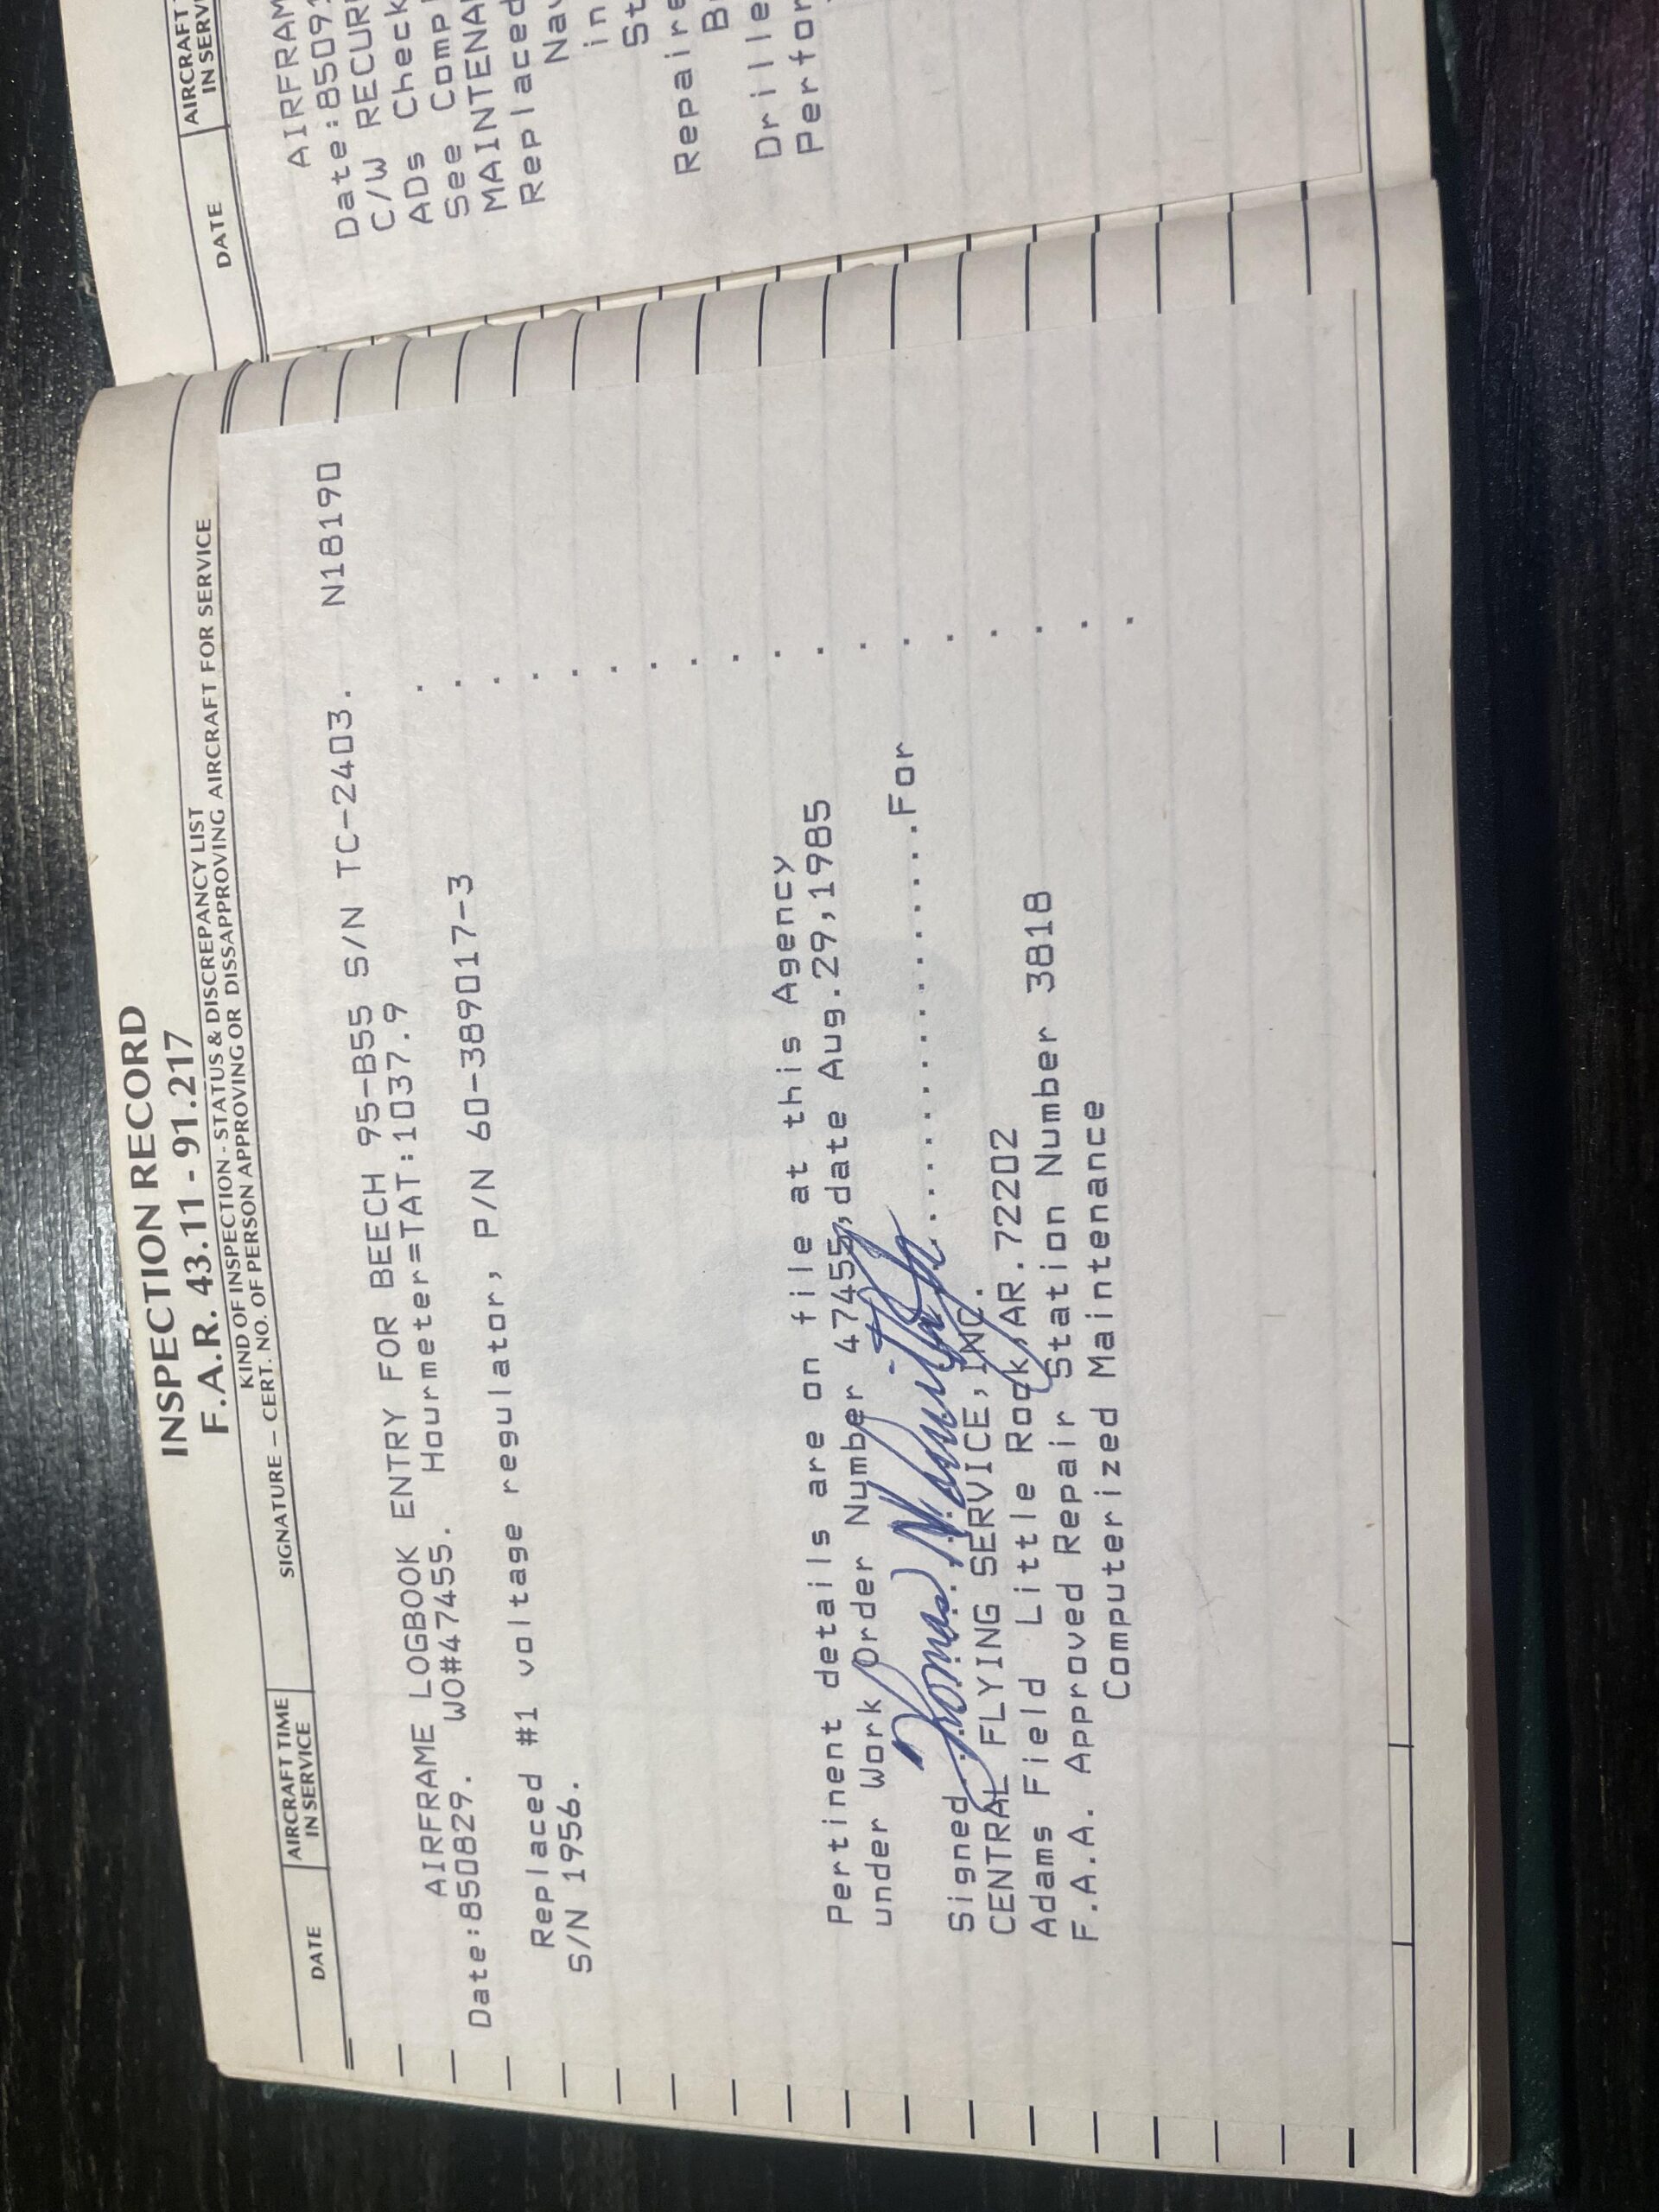 INSPECTION RECORD
F.A.R. 43.11 - 91.217
KIND OF INSPECTION - STATUS & DISCREPANCY LIST
SIGNATURE – CERT. NO. OF PERSON APPROVING OR DISAPPROVING AIRCRAFT FOR SERVICE
DATE
AIRCRAFT TIME
IN SERVICE
AIRFRAME LOGBOOK ENTRY FOR BEECH 95-B55 S/N TC-2403. N18190
Date:850829. WO#47455. Hourmeter=TAT:1037.9
Replaced #1 voltage regulator, P/N 60-389017-3
S/N 1956.
Pertinent details are on file at this Agency
under Work Order Number 47455,date Aug.29,1985
Signed Thomas For
CENTRAL FLYING SERVICE,INC.
Adams Field Little Rock,AR.72202
F.A.A. Approved Repair Station Number 3818
Computerized Maintenance
DATE
AIRCRAFT
IN SERV
AIRFRAM
Date:8509
C/W RECUR
ADs Check
See Comp
MAINTENA
Replaced
Nav
in
St
Repaire
B
Drille
Perfor